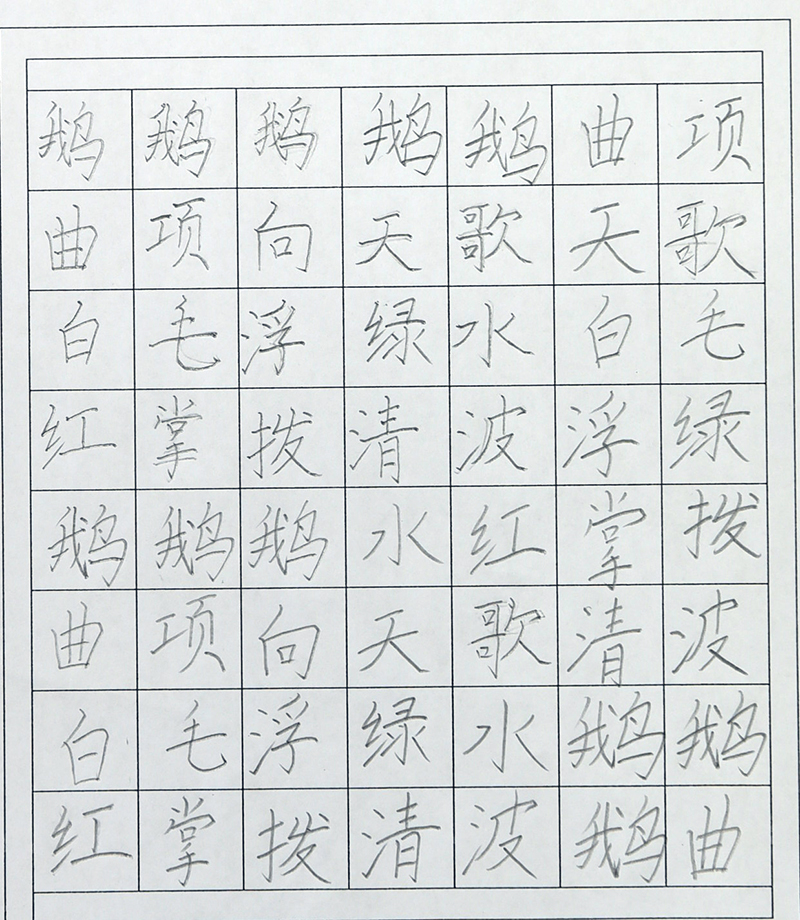 鹅鹅鹅鹅鹅曲项
曲项向天歌天歌
白毛浮绿水白毛
红掌拨清波浮绿
鹅鹅鹅水红掌拨
曲项向天歌清波
白毛浮绿水鹅鹅
红掌拨清波鹅曲